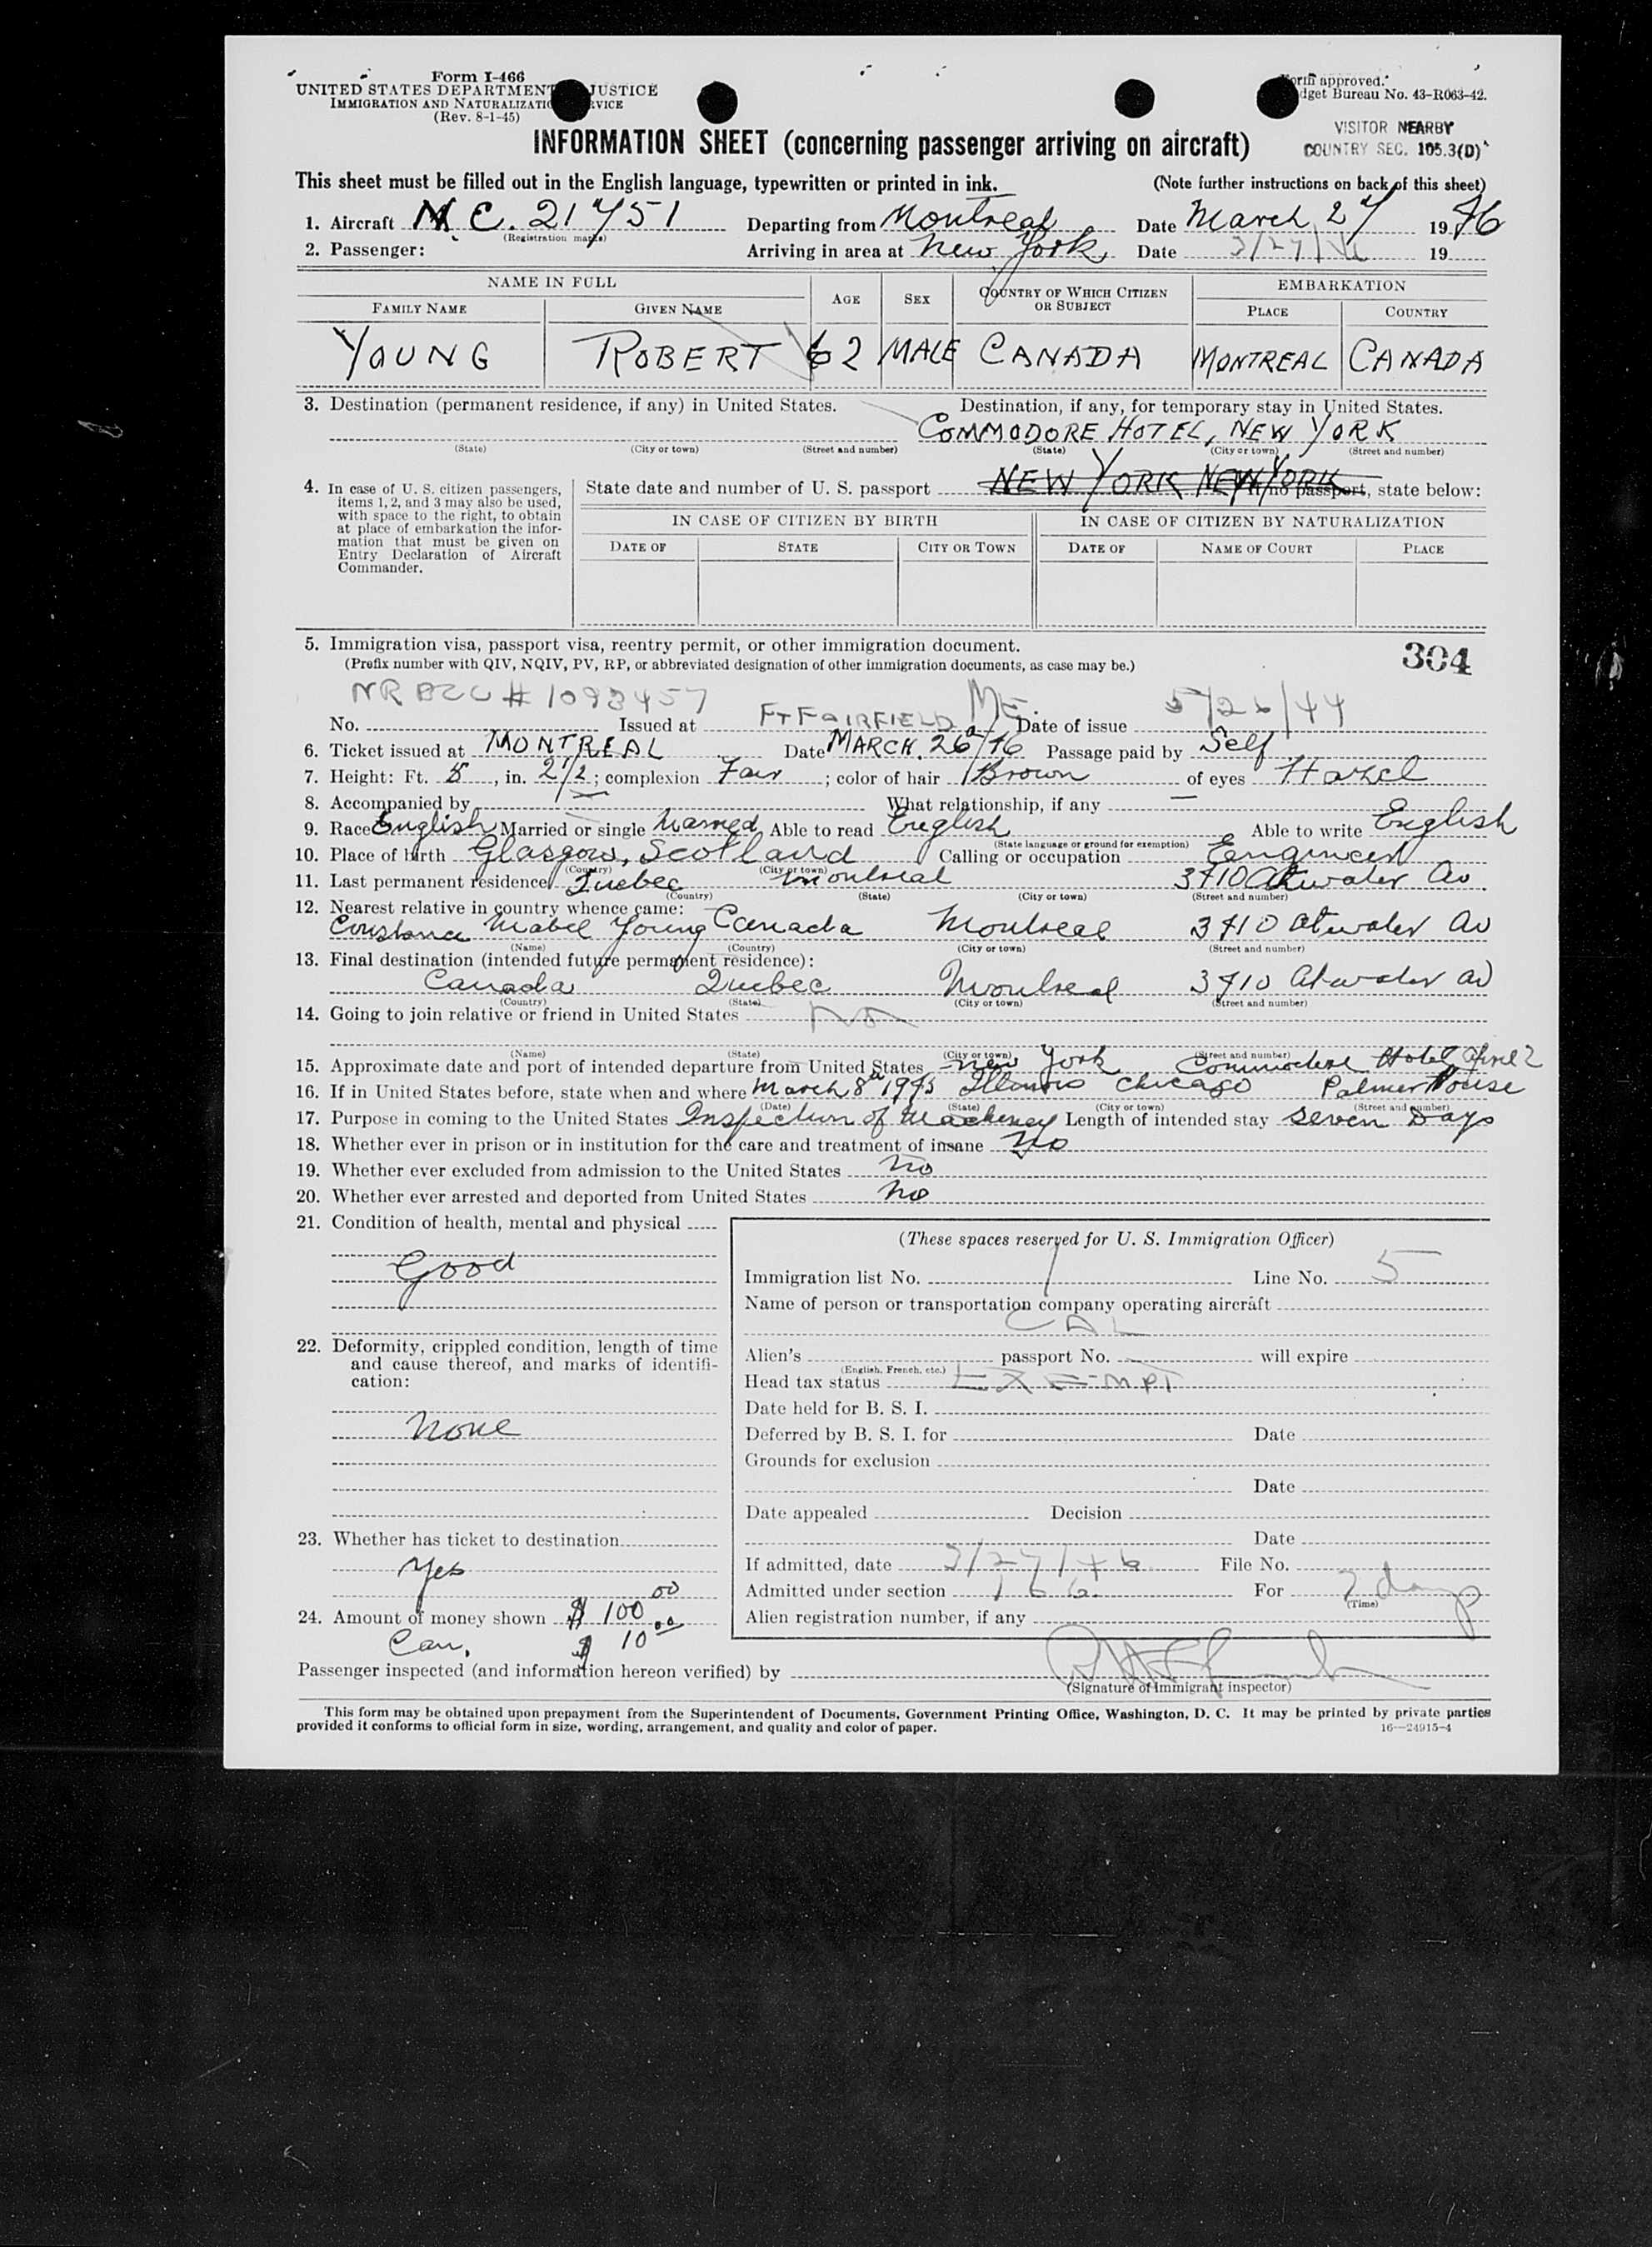 Form I-466
UNITED STATES DEPARTMENT JUSTICE
IMMIGRATION AND NATURALIZATIO RVICE
(Rev. 8-1-45)
orm approved.
dget Bureau No. 43-R063-42.
VISITOR NEARBY
COUNTRY SEC. 105.3(D)
INFORMATION SHEET (concerning passenger arriving on aircraft)
This sheet must be filled out in the English language, typewritten or printed in ink. (Note further instructions on back of this sheet)
1. Aircraft N.C. 21751 Departing from Montreal Date March 27 1946
(Registration marks)
2. Passenger: Arriving in area at New York Date 3/27/46 19
NAME IN FULL AGE SEX COUNTRY OF WHICH CITIZEN OR SUBJECT EMBARKATION
FAMILY NAME GIVEN NAME PLACE COUNTRY
YOUNG ROBERT 62 MALE CANADA MONTREAL CANADA
3. Destination (permanent residence, if any) in United States. Destination, if any, for temporary stay in United States.
COMMODORE HOTEL, NEW YORK
(State) (City or town) (Street and number) (State) (City or town) (Street and number)
4. In case of U. S. citizen passengers, items 1, 2, and 3 may also be used, with space to the right, to obtain at place of embarkation the information that must be given on Entry Declaration of Aircraft Commander.
State date and number of U. S. passport NEW YORK NEW YORK If no passport, state below:
IN CASE OF CITIZEN BY BIRTH IN CASE OF CITIZEN BY NATURALIZATION
DATE OF STATE CITY OR TOWN DATE OF NAME OF COURT PLACE
5. Immigration visa, passport visa, reentry permit, or other immigration document. 304
(Prefix number with QIV, NQIV, PV, RP, or abbreviated designation of other immigration documents, as case may be.)
NRBCC # 1093457 FT FAIRFIELD ME. 5/26/44
No. Issued at Date of issue
6. Ticket issued at MONTREAL Date MARCH. 26/46 Passage paid by Self
7. Height: Ft. 5, in. 2 1/2; complexion Fair; color of hair Brown of eyes Hazel
8. Accompanied by — What relationship, if any —
9. Race English Married or single Married Able to read English Able to write English
(State language or ground for exemption)
10. Place of birth Glasgow, Scotland Calling or occupation Engineer
(Country) (City or town)
11. Last permanent residence Quebec Montreal 3410 Atwater Av.
(Country) (State) (City or town) (Street and number)
12. Nearest relative in country whence came:
Constance Mabel Young Canada Montreal 3410 Atwater Av
(Name) (Country) (City or town) (Street and number)
13. Final destination (intended future permanent residence):
Canada Quebec Montreal 3410 Atwater Av
(Country) (State) (City or town) (Street and number)
14. Going to join relative or friend in United States No
(Name) (State) (City or town) (Street and number)
15. Approximate date and port of intended departure from United States New York Commodore Hotel April 2
16. If in United States before, state when and where March 8th 1945 Illinois Chicago Palmer House
(Date) (State) (City or town) (Street and number)
17. Purpose in coming to the United States Inspection of Machinery Length of intended stay seven Days
18. Whether ever in prison or in institution for the care and treatment of insane No
19. Whether ever excluded from admission to the United States No
20. Whether ever arrested and deported from United States No
21. Condition of health, mental and physical
Good
22. Deformity, crippled condition, length of time and cause thereof, and marks of identification:
None
23. Whether has ticket to destination
Yes
24. Amount of money shown $ 100.00
Can. $ 10.00
(These spaces reserved for U. S. Immigration Officer)
Immigration list No. 1 Line No. 5
Name of person or transportation company operating aircraft
CAL
Alien's passport No. will expire
(English, French, etc.)
Head tax status EXEMPT
Date held for B. S. I.
Deferred by B. S. I. for Date
Grounds for exclusion
Date
Date appealed Decision
Date
If admitted, date 3/27/46 File No.
Admitted under section 166. For 7 days
(Time)
Alien registration number, if any
Passenger inspected (and information hereon verified) by
(Signature of immigrant inspector)
This form may be obtained upon prepayment from the Superintendent of Documents, Government Printing Office, Washington, D. C. It may be printed by private parties
provided it conforms to official form in size, wording, arrangement, and quality and color of paper. 16—24915-4